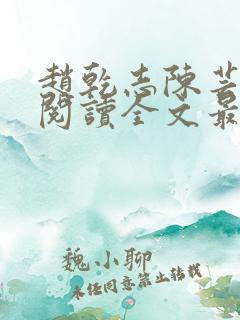 趙乾志陳
閱讀全文最
魏小聊
未經同意禁止轉載